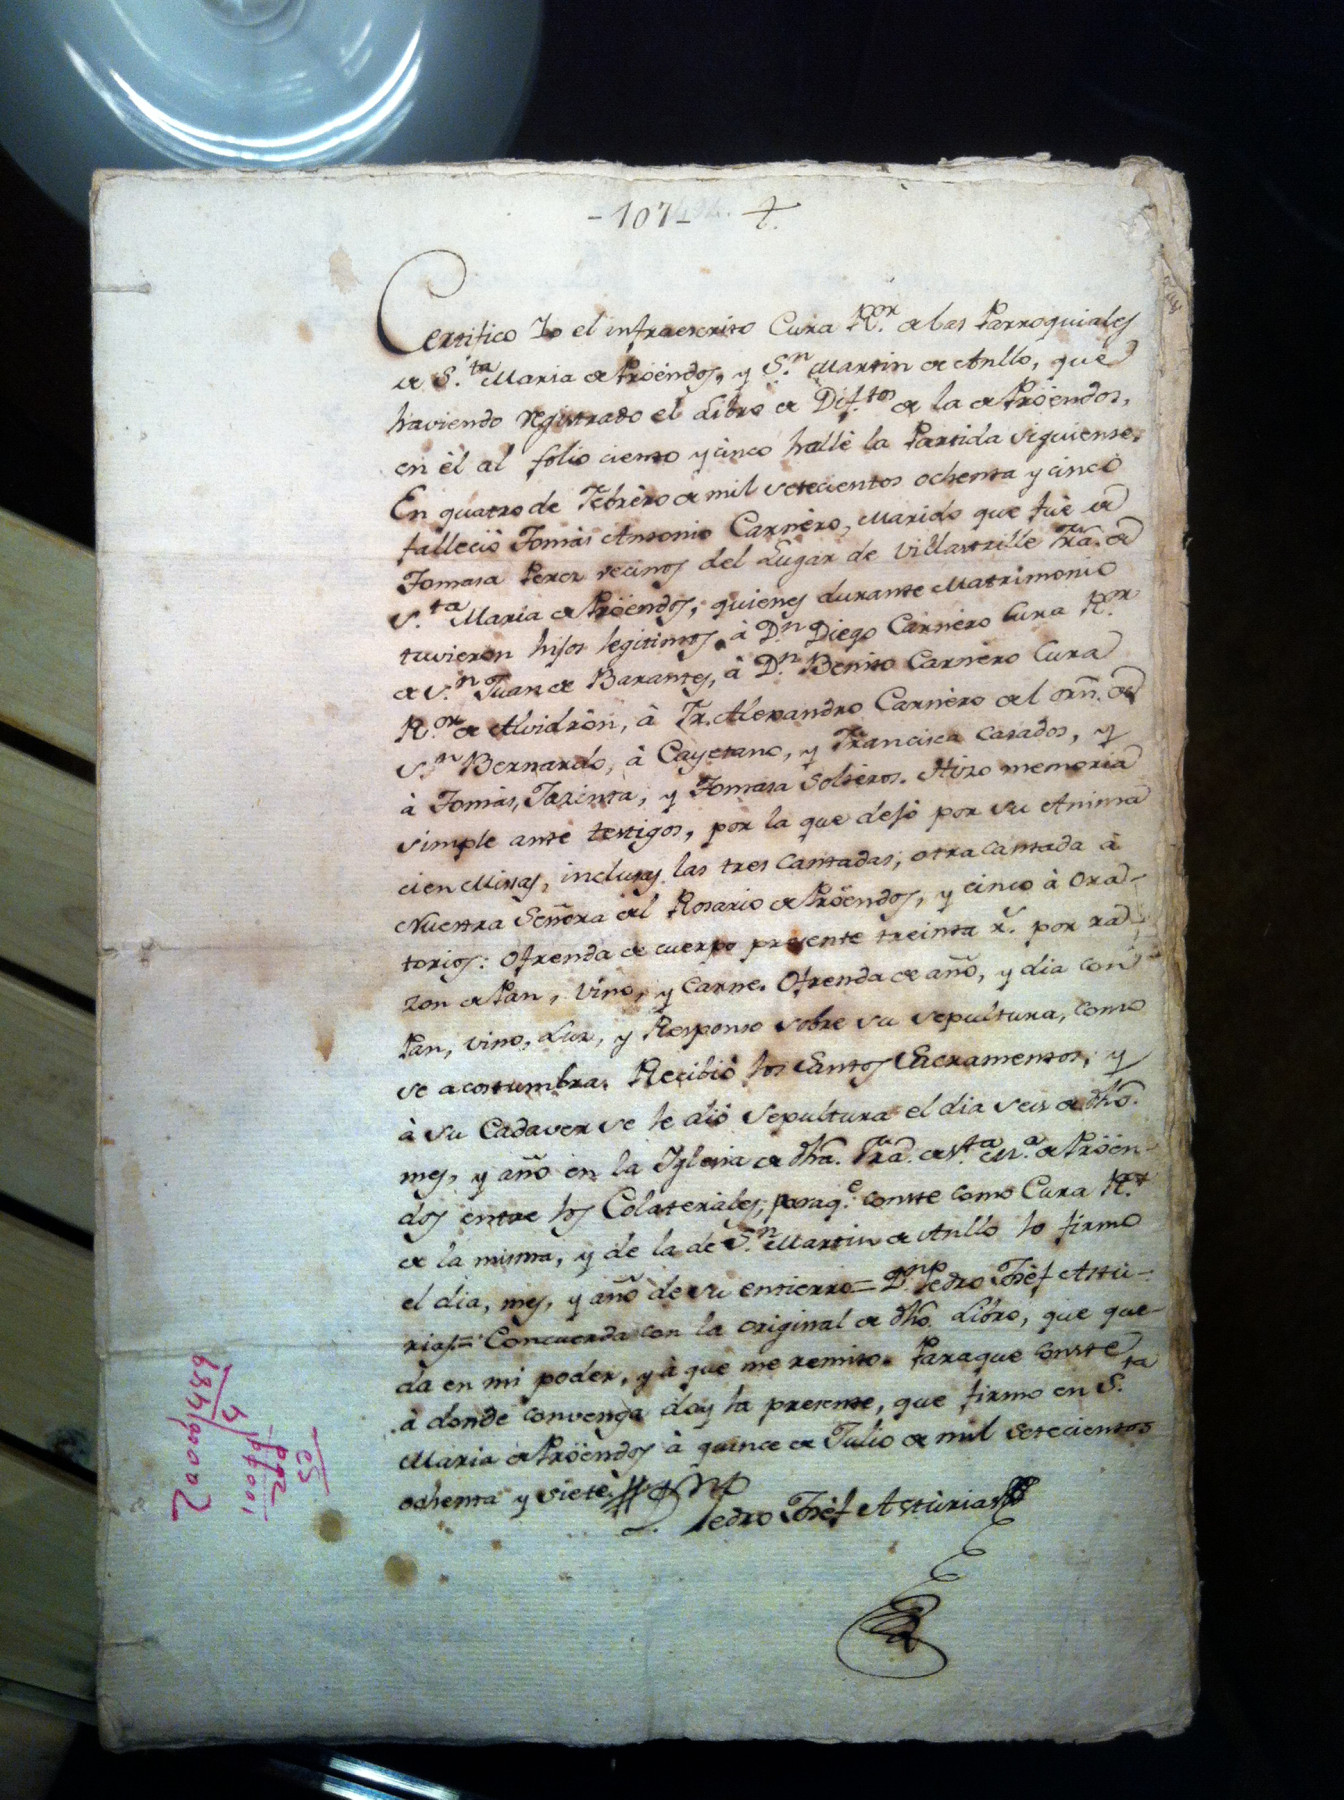 - 107 -
Certifico Yo el infraescrito Cura R.or de las Parroquiales
de S.ta Maria de Pröendos, y S.n Martin de Anllo, que
haviendo rejistrado el Libro de Dif.tos de la de Pröendos,
en èl al folio ciento y cinco hallè la Partida siguiente.
En quatro de Febrèro de mil setecientos ochenta y cinco
falleciò Tomàs Antonio Carnèro, Marido que fuè de
Tomasa Perez vecinos del Lugar de Villastrille Fra. de
S.ta Maria de Pröendos, quienes durante Matrimonio
tuvieron hijos legitimos à D.n Diego Carnèro Cura R.or
de S.n Juan de Barantes, à D.n Benito Carnèro Cura
R.or de Alvidrôn, à Fr. Alexandro Carnèro del Orñ. de
S.n Bernardo, à Cayetano, y Francisca casados, y
à Tomàs, Jazinta, y Tomasa Soltèros. Hizo memoria
simple ante testigos, por la que dejò por su Anima
cien Misas, inclusas las tres cantadas, otra cantada à
Nuestra Señora del Rosario de Pröendos, y cinco à Ora-
torios: Ofrenda de cuerpo presente treinta r.s por ra-
zon de Pan, vino, y Carne. Ofrenda de año, y dia con
Pan, vino, Luz, y Responso sobre su sepultura, como
se acostumbra. Recibiò los Santos Sacramentos, y
à su Cadaver se le diò Sepultura el dia seis de dho.
mes, y año en la Iglesia de dha. Fra. de S.ta M.a de Pröen-
dos entre los Colaterales, paraq.e conste como Cura R.or
de la misma, y de la de S.n Martin de Anllo lo firmo
el dia, mes, y año de su entierro = D.n Pedro Josèf Astù-
rias = Concuerda con la original de dho. Libro, que que-
da en mi poder, y à que me remito. Paraque conste
à donde convenga doy la presente, que firmo en S.ta
Maria de Pröendos à quince de Julio de mil setecientos
ochenta y siete.
D.n Pedro Josèf Astùrias